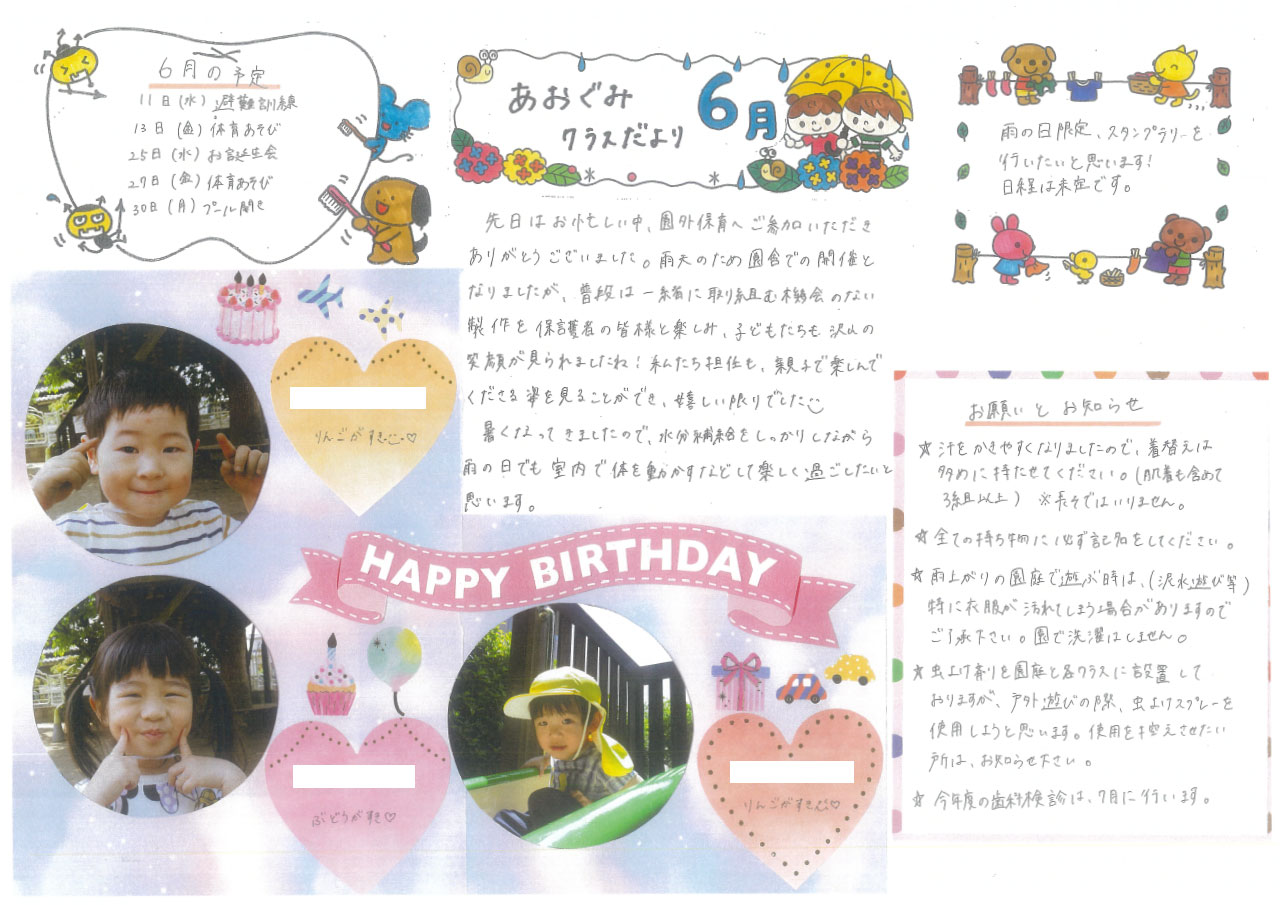 6月の予定
11日(水) 避難訓練
13日(金) 体育あそび
25日(水) お誕生会
27日(金) 体育あそび
30日(月) プール開き
あおぐみ
クラスだより
6月
先日はお忙しい中、園外保育へご参加いただき
ありがとうございました。雨天のため園舎での開催と
なりましたが、普段は一緒に取り組む機会のない
製作を保護者の皆様と楽しみ、子どもたちも沢山の
笑顔が見られましたね!私たち担任も、親子で楽しんで
くださる姿を見ることができ、嬉しい限りでした
暑くなってきましたので、水分補給をしっかりしながら
雨の日でも室内で体を動かすなどして楽しく過ごしたいと
思います。
雨の日限定、スタンプラリーを
行いたいと思います!
日程は未定です。
りんごがすき♡
HAPPY BIRTHDAY
ぶどうがすき♡
りんごがすき♡
お願いとお知らせ
☆汗をかきやすくなりましたので、着替えは
多めに持たせてください。(肌着も含めて
3組以上) ※長そではいりません。
☆全ての持ち物に必ず記名をしてください。
☆雨上がりの園庭で遊ぶ時は、(泥水遊び等)
特に衣服が汚れてしまう場合がありますので
ご了承下さい。園で洗濯はしません。
☆虫よけ剤を園庭と各クラスに設置して
おりますが、戸外遊びの際、虫よけスプレーを
使用しようと思います。使用を控えさせたい
所は、お知らせ下さい。
☆今年度の歯科検診は、7月に行います。